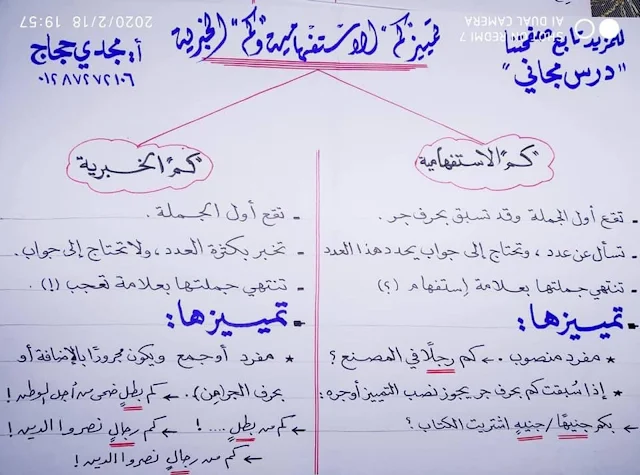 للمزيد تابع صفحتنا
"درس مجاني"
تمييز كم "الاستفهامية و"كم" الخبرية
أ. مجدي حجاج
٠١٢٨٧٢٧٢١٠٦
2020/2/18 19:57
SHOT ON REDMI 7
AI DUAL CAMERA
"كم" الاستفهامية
- تقع أول الجملة وقد تسبق بحرف جر.
- تسأل عن عدد، وتحتاج إلى جواب يحدد هذا العدد
- تنتهي جملتها بعلامة إستفهام (؟)
- تمييزها:
* مفرد منصوب. ← كم رجلًا في المصنع؟
* إذا سُبقت كم بحرف جر يجوز نصب التمييز أو جره:
← بكم جنيهًا/جنيهٍ اشتريت الكتاب؟
"كم" الخبرية
- تقع أول الجملة.
- تخبر بكثرة العدد، ولا تحتاج إلى جواب.
- تنتهي جملتها بعلامة تعجب (!).
- تمييزها:
* مفرد أو جمع ويكون مجرورًا بالإضافة أو
بحرف الجر(من). ← كم بطلٍ ضحى من أجل الوطن!
← كم من بطلٍ ....! ← كم رجالٍ نصروا الدين!
← كم من رجالٍ نصروا الدين!